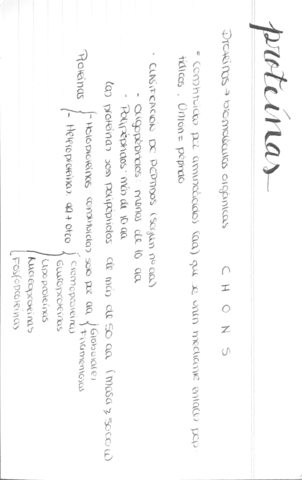 proteínas
Proteínas → biomoléculas orgánicas C H O N S
• constituidas por aminoácidos (aa) que se unen mediante enlaces pep
tídicos. Unión = péptido
• CLASIFICACIÓN DE PÉPTIDOS (según nº aa)
- Oligopéptidos menos de 10 aa
- Polipéptidos más de 10 aa
Las proteínas son polipéptidos de más de 50 aa (masa ≥ 5000 u)
Proteínas - Holoproteínas constituidas solo por aa Globulares
Filamentosas
- Heteroproteínas aa + otro cromoproteínas
Glucoproteínas
Lipoproteínas
Nucleoproteínas
Fosfoproteínas